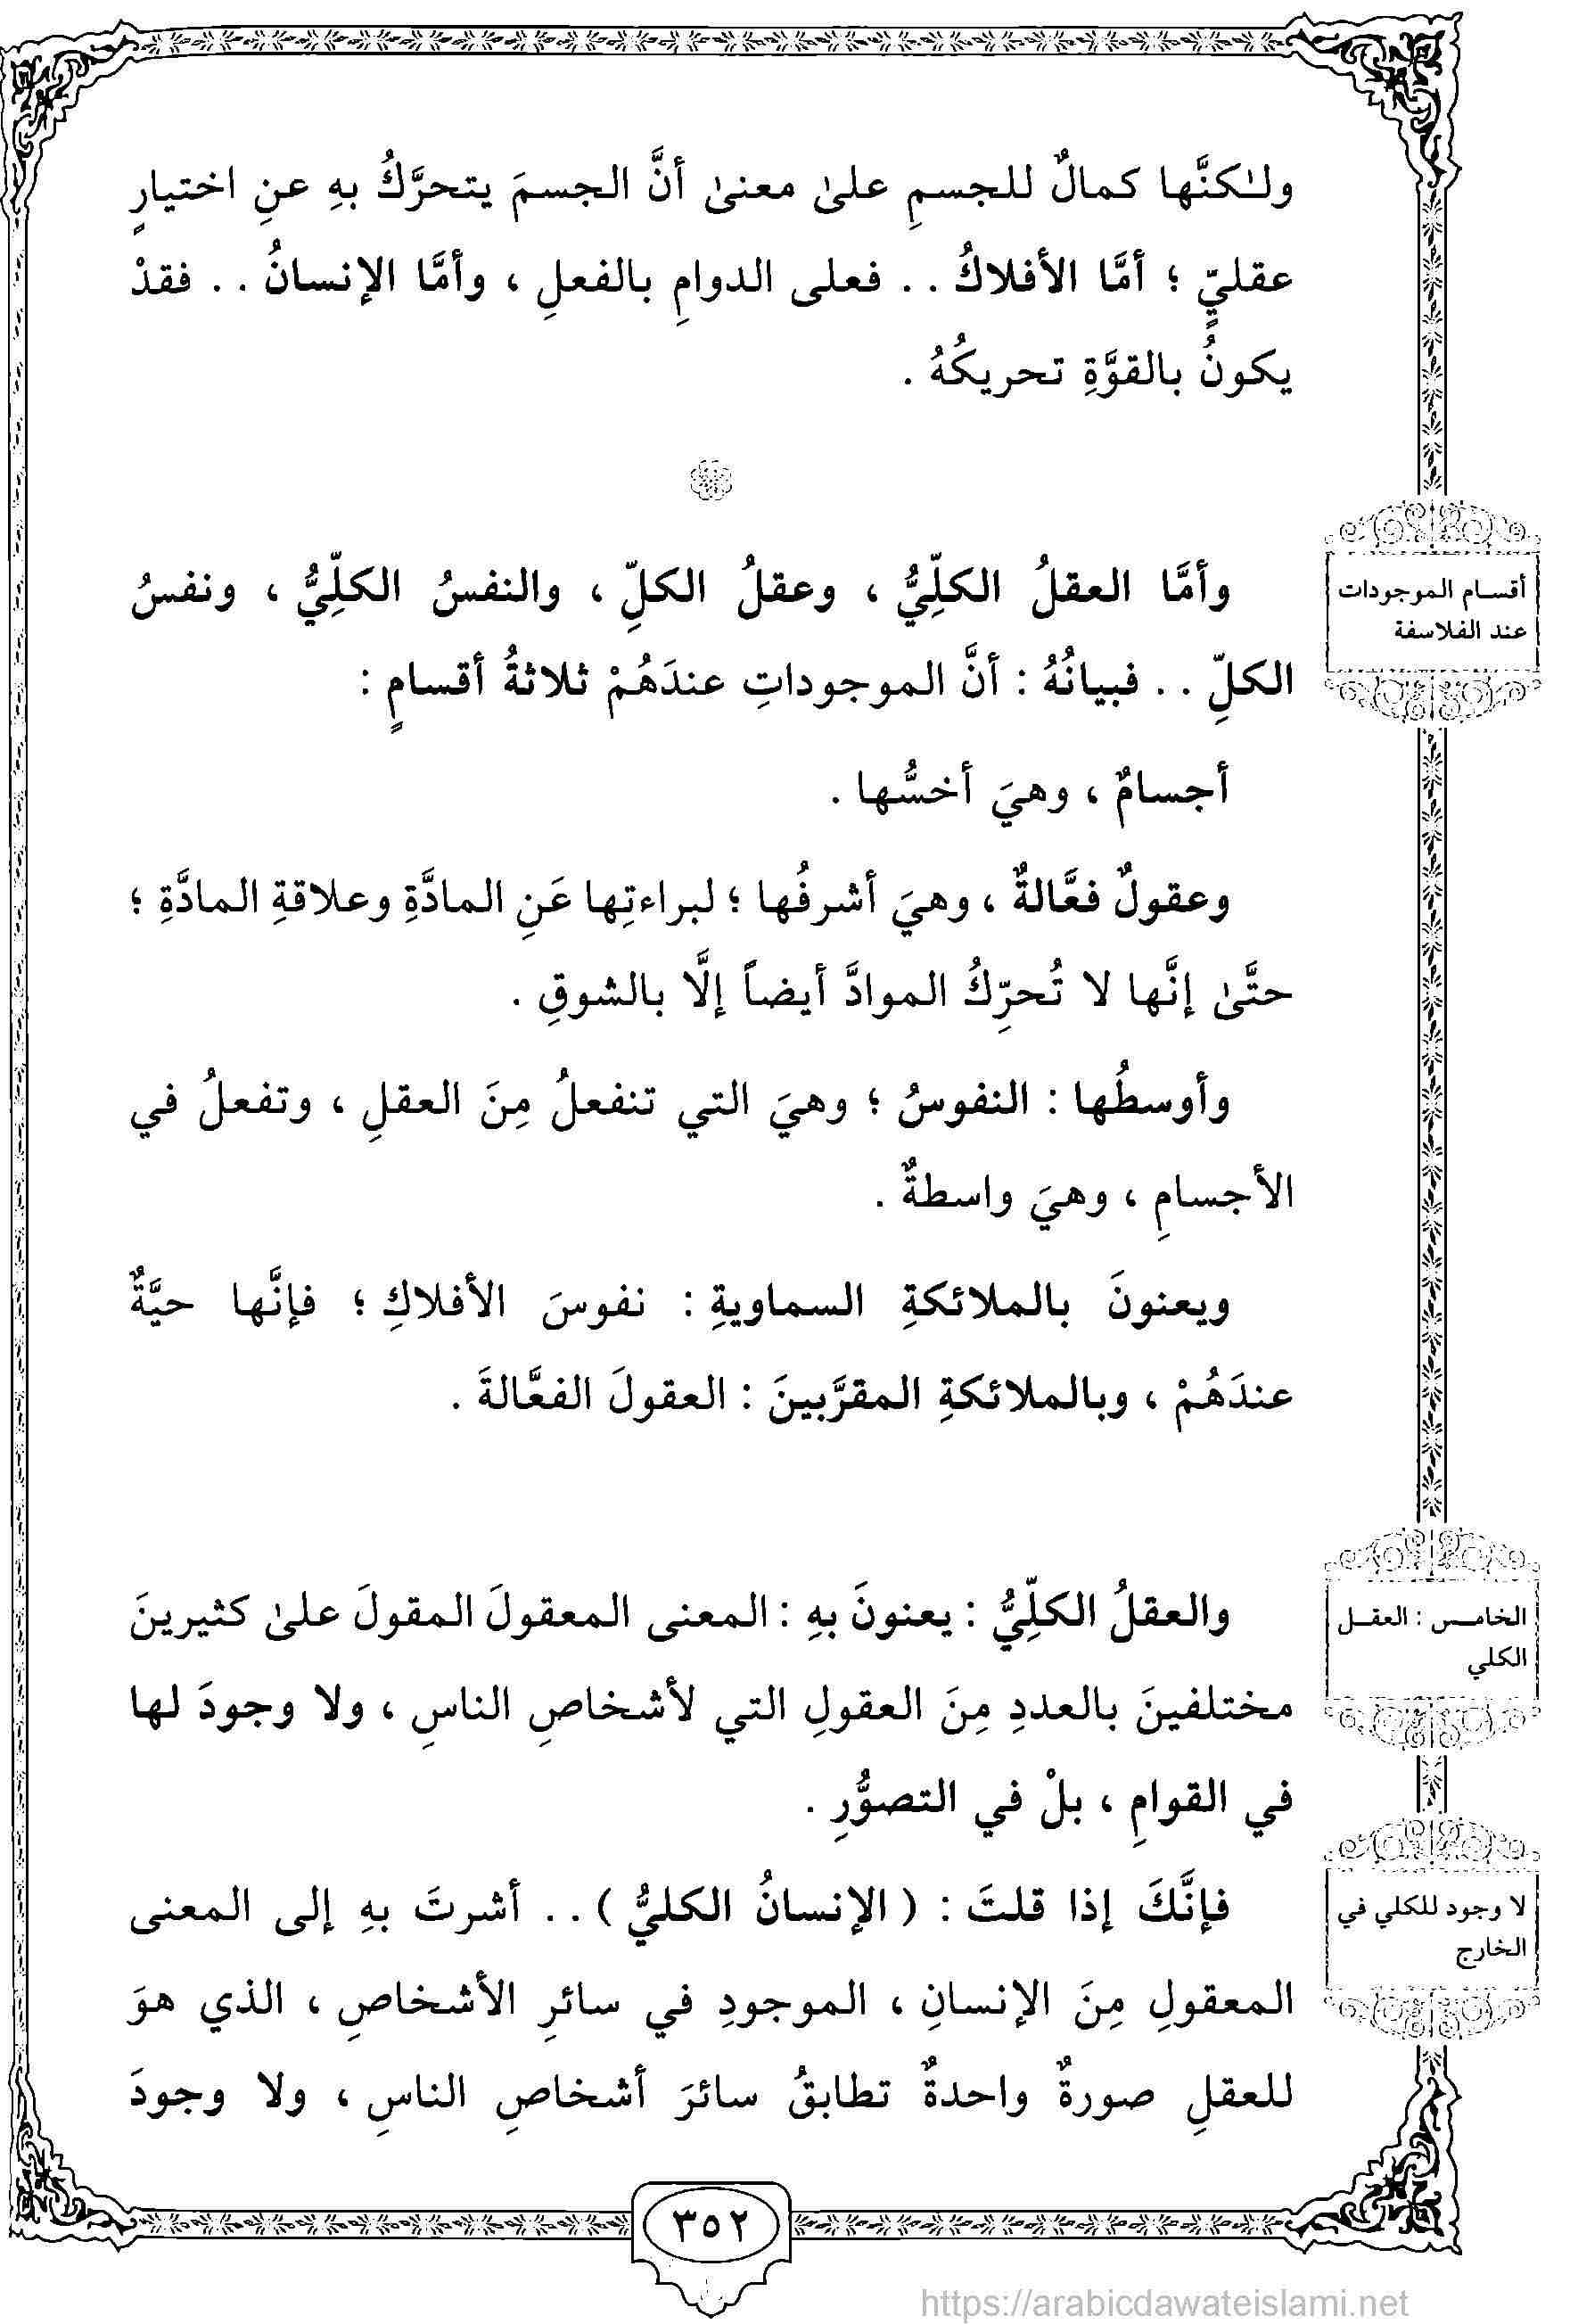 ولـٰكنَّها كمالٌ للجسمِ علىٰ معنىٰ أنَّ الجسمَ يتحرَّكُ بهِ عنِ اختيارٍ
عقليٍّ ؛ أمَّا الأفلاكُ . . فعلى الدوامِ بالفعلِ ، وأمَّا الإنسانُ . . فقدْ
يكونُ بالقوَّةِ تحريكُهُ .
أقسام الموجودات
عند الفلاسفة
وأمَّا العقلُ الكلِّيُّ ، وعقلُ الكلِّ ، والنفسُ الكلِّيُّ ، ونفسُ
الكلِّ . . فبيانُهُ : أنَّ الموجوداتِ عندَهُمْ ثلاثةُ أقسامٍ :
أجسامٌ ، وهيَ أخسُّها .
وعقولٌ فعَّالةٌ ، وهيَ أشرفُها ؛ لبراءتِها عَنِ المادَّةِ وعلاقةِ المادَّةِ ؛
حتَّىٰ إنَّها لا تُحرِّكُ الموادَّ أيضاً إلَّا بالشوقِ .
وأوسطُها : النفوسُ ؛ وهيَ التي تنفعلُ مِنَ العقلِ ، وتفعلُ في
الأجسامِ ، وهيَ واسطةٌ .
ويعنونَ بالملائكةِ السماويةِ : نفوسَ الأفلاكِ ؛ فإنَّها حيَّةٌ
عندَهُمْ ، وبالملائكةِ المقرَّبينَ : العقولَ الفعَّالةَ .
الخامس : العقل
الكلي
والعقلُ الكلِّيُّ : يعنونَ بهِ : المعنى المعقولَ المقولَ علىٰ كثيرينَ
مختلفينَ بالعددِ مِنَ العقولِ التي لأشخاصِ الناسِ ، ولا وجودَ لها
في القوامِ ، بلْ في التصوُّرِ .
لا وجود للكلي في
الخارج
فإنَّكَ إذا قلتَ : ( الإنسانُ الكليُّ ) . . أشرتَ بهِ إلى المعنى
المعقولِ مِنَ الإنسانِ ، الموجودِ في سائرِ الأشخاصِ ، الذي هوَ
للعقلِ صورةٌ واحدةٌ تطابقُ سائرَ أشخاصِ الناسِ ، ولا وجودَ
٣٥٢
https://arabicdawateislami.net